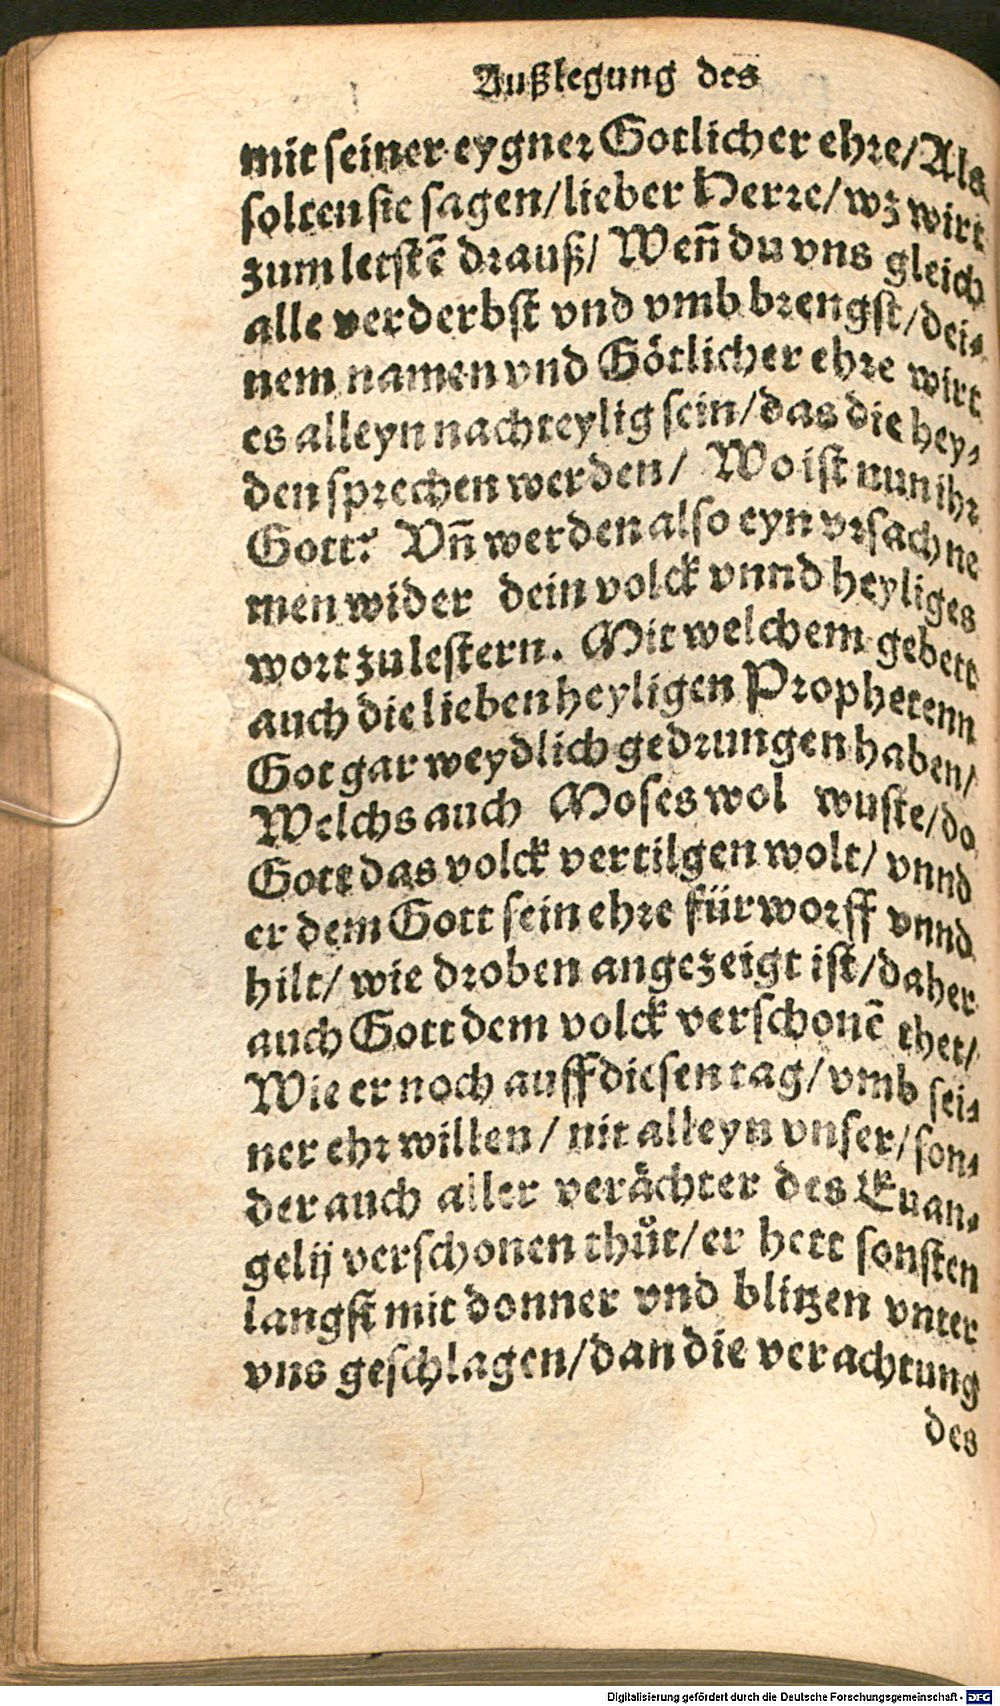 Außlegung des
mit seiner eygner Gotlicher ehre/Als
solten sie sagen/lieber Herre/wz wirt
zum letstē drauß/ Weñ du vns gleich
alle verderbst vnd vmb brengst/dei⸗
nem namen vnd Götlicher ehre wirt
es alleyn nachteylig sein/das die hey⸗
den sprechen werden/ Wo ist nun ihr
Gott? Vñ werden also eyn vrsach ne
men wider dein volck vnnd heyliges
wort zu lestern. Mit welchem gebett
auch die lieben heyligen Prophetenn
Got gar weydlich gedrungen haben/
Welchs auch Moses wol wuste/do
Gott das volck vertilgen wolt/ vnnd
er dem Gott sein ehre fürworff vnnd
hilt/ wie droben angezeigt ist/daher
auch Gott dem volck verschonē thet/
Wie er noch auff diesen tag/vmb sei⸗
ner ehr willen/ nit alleyn vnser/son⸗
der auch aller verächter des Euan⸗
gelij verschonen thůt/er hett sonsten
langst mit donner vnd blitzen vnter
vns geschlagen/dan die verachtung
des
Digitalisierung gefördert durch die Deutsche Forschungsgemeinschaft - DFG